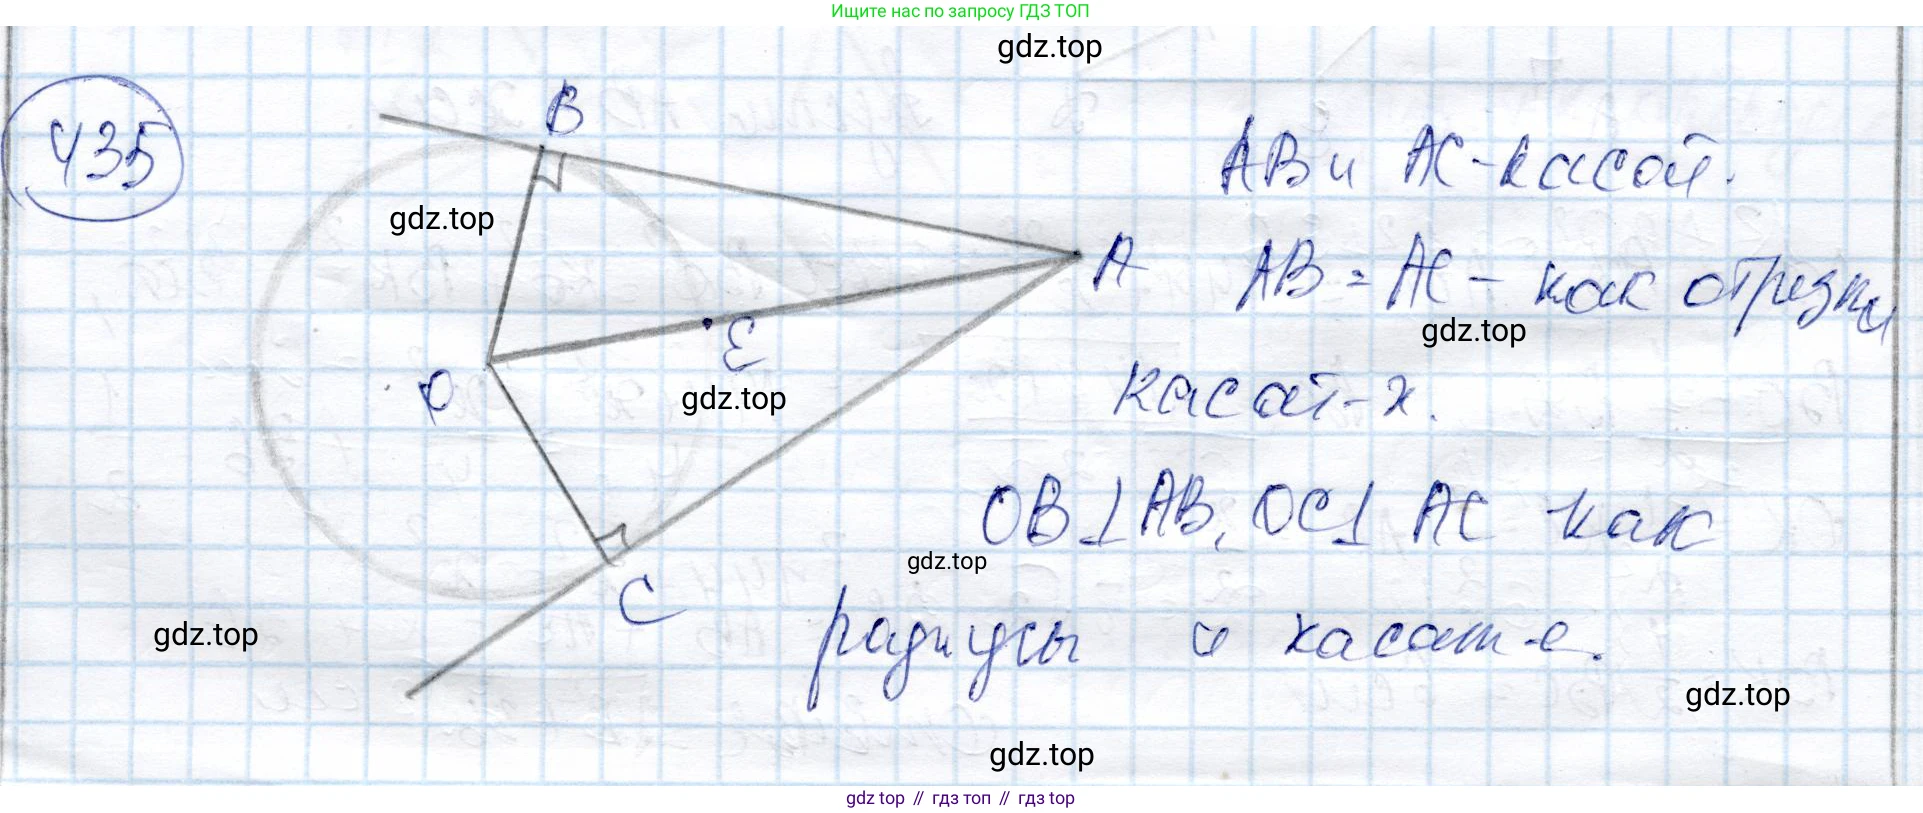 Ищите нас по запросу ГДЗ ТОП
gdz.top
435
B
AB и AC - касат.
gdz.top
A
AB = AC - как отрезки
gdz.top
E
O
gdz.top
касат-х.
OB ⊥ AB, OC ⊥ AC как
gdz.top
C
gdz.top
радиусы и касат-е.
gdz.top
gdz.top
gdz top // гдз топ // гдз top